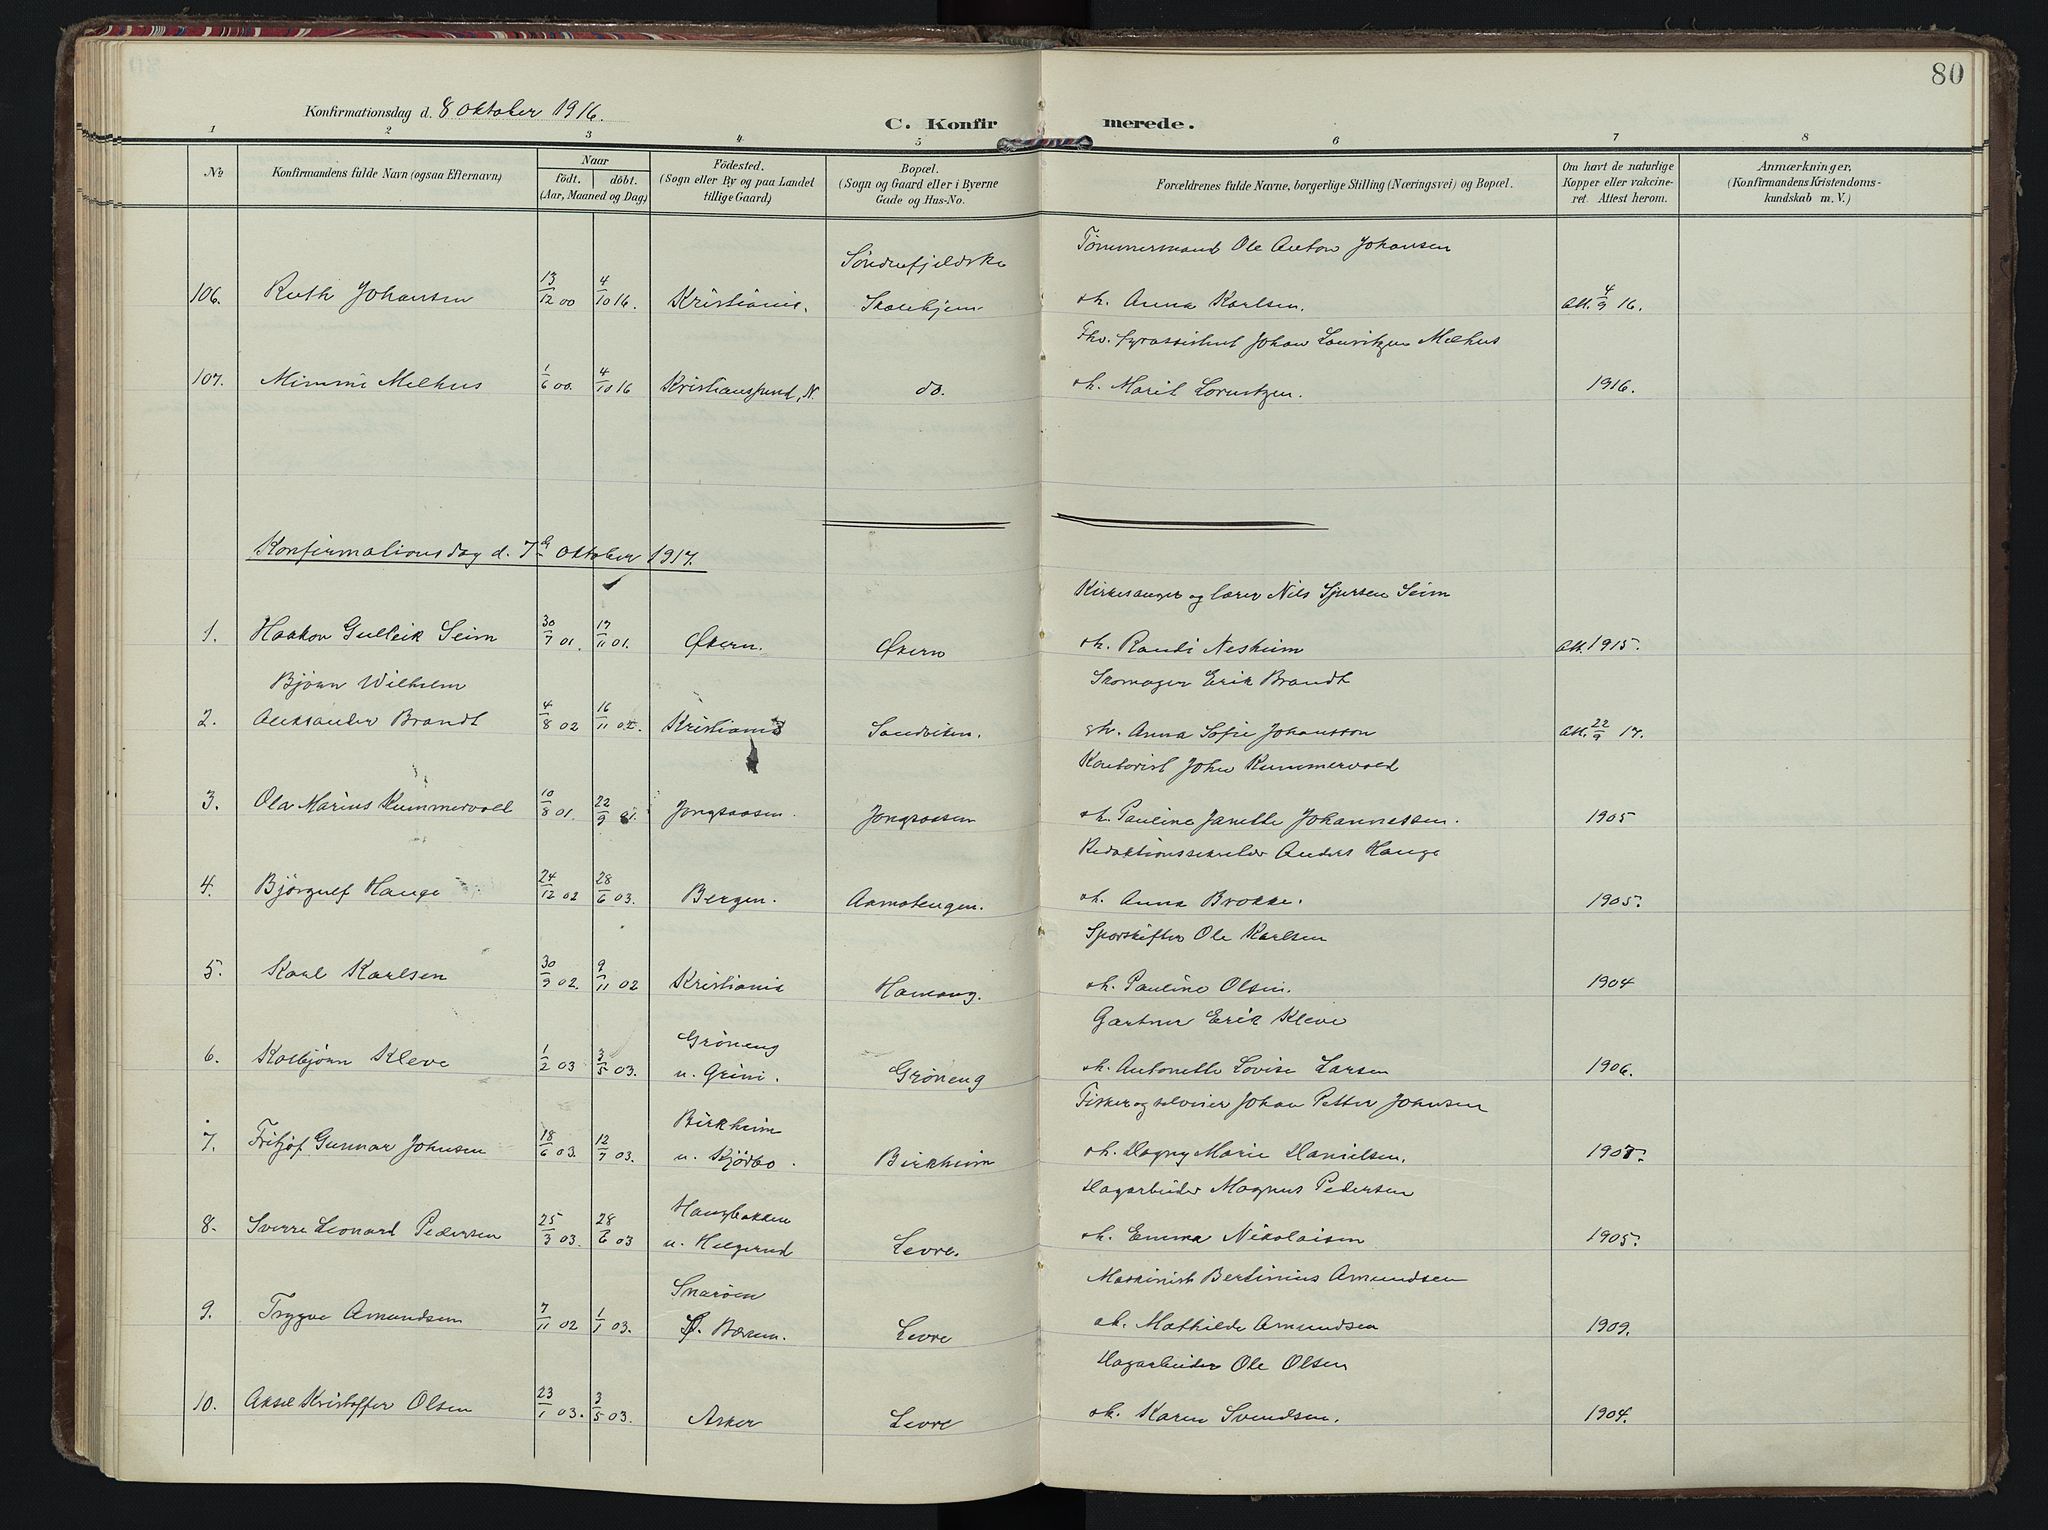 80
Konfirmationsdag d. 8 Oktober 1916.
C. Konfirmerede.
1 2 3 4 5 6 7 8
No. Konfirmandens fulde Navn (ogsaa Efternavn) Naar født. døbt. (Aar, Maaned og Dag) Födested. (Sogn eller By og paa Landet tillige Gaard) Bopæl. (Sogn og Gaard eller i Byerne Gade og Hus-No. Forældrenes fulde Navne, borgerlige Stilling (Næringsvei) og Bopæl. Om havt de naturlige Kopper eller vakcineret. Attest herom. Anmærkninger, (Konfirmandens Kristendomskundskab m. V.)
Søndenfjeldske Tømmermand Ole Anton Johansen
106. Ruth Johansen 13/12 00 4/10 16. Kristiania. Skolehjem. og h. Anna Karlsen. Att. 4/9 16.
Fhv. fyrassistent Johan Lauritzen Melhus
107. Mimmi Melhus 1/6 00. 4/10 16 Kristianssund, N. do. og h. Marit Lorentzen. 1916.
Konfirmationsdag d. 7de Oktober 1917.
Kirkesanger og lærer Nils Sjursen Seim
1. Haakon Gulleik Seim 30/7 01. 17/11 01. Økern. Økern og h. Randi Nesheim Att. 1915.
Bjørn Wilhelm Skomager Erik Brandt
2. Aleksander Brandt 4/8 02 16/11 02. Kristiania Sandviken. og h. Anna Sofie Johansson Att. 22/9 17.
Kontorist John Kummervold
3. Ola Marius Kummervold 10/8 01. 22/9 01. Jongsaasen. Jongsaasen og h. Pauline Janette Johannessen. 1905
Redaktionssekretær Anders Hauge
4. Bjørgulf Hauge 24/12 02 28/6 03. Bergen. Aamotengen. og h. Anna Brokke. 1905.
Sporskifter Ole Karlsen
5. Karl Karlsen 30/9 02. 9/11 02 Kristiania Hamang. og h. Pauline Olsen. 1904
Grøneng Gartner Erik Kleve
6. Kolbjørn Kleve 1/2 03 3/5 03. u. Grini. Grøneng og h. Antonette Lovise Larsen 1906.
Birkheim Fisker og selveier Johan Petter Johnsen
7. Fritjof Gunnar Johnsen 18/6 03. 12/7 03. u. Kjørbo. Birkheim og h. Dagny Marie Danielsen. 1907.
Haugbakken Dagarbeider Magnus Pedersen
8. Sverre Leonard Pedersen 25/3 03. 28/6 03 u. Helgerud Levre. og h. Emma Nikolaisen 1905.
Snarøen Maskinist Bertinius Amundsen
9. Trygve Amundsen 7/11 02 1/1 03. Ø. Bærum. Levre og h. Mathilde Amundsen 1909.
Dagarbeider Ole Olsen
10. Aksel Kristoffer Olsen 23/1 03. 3/5 03. Asker Levre og h. Karen Svendsen. 1904.